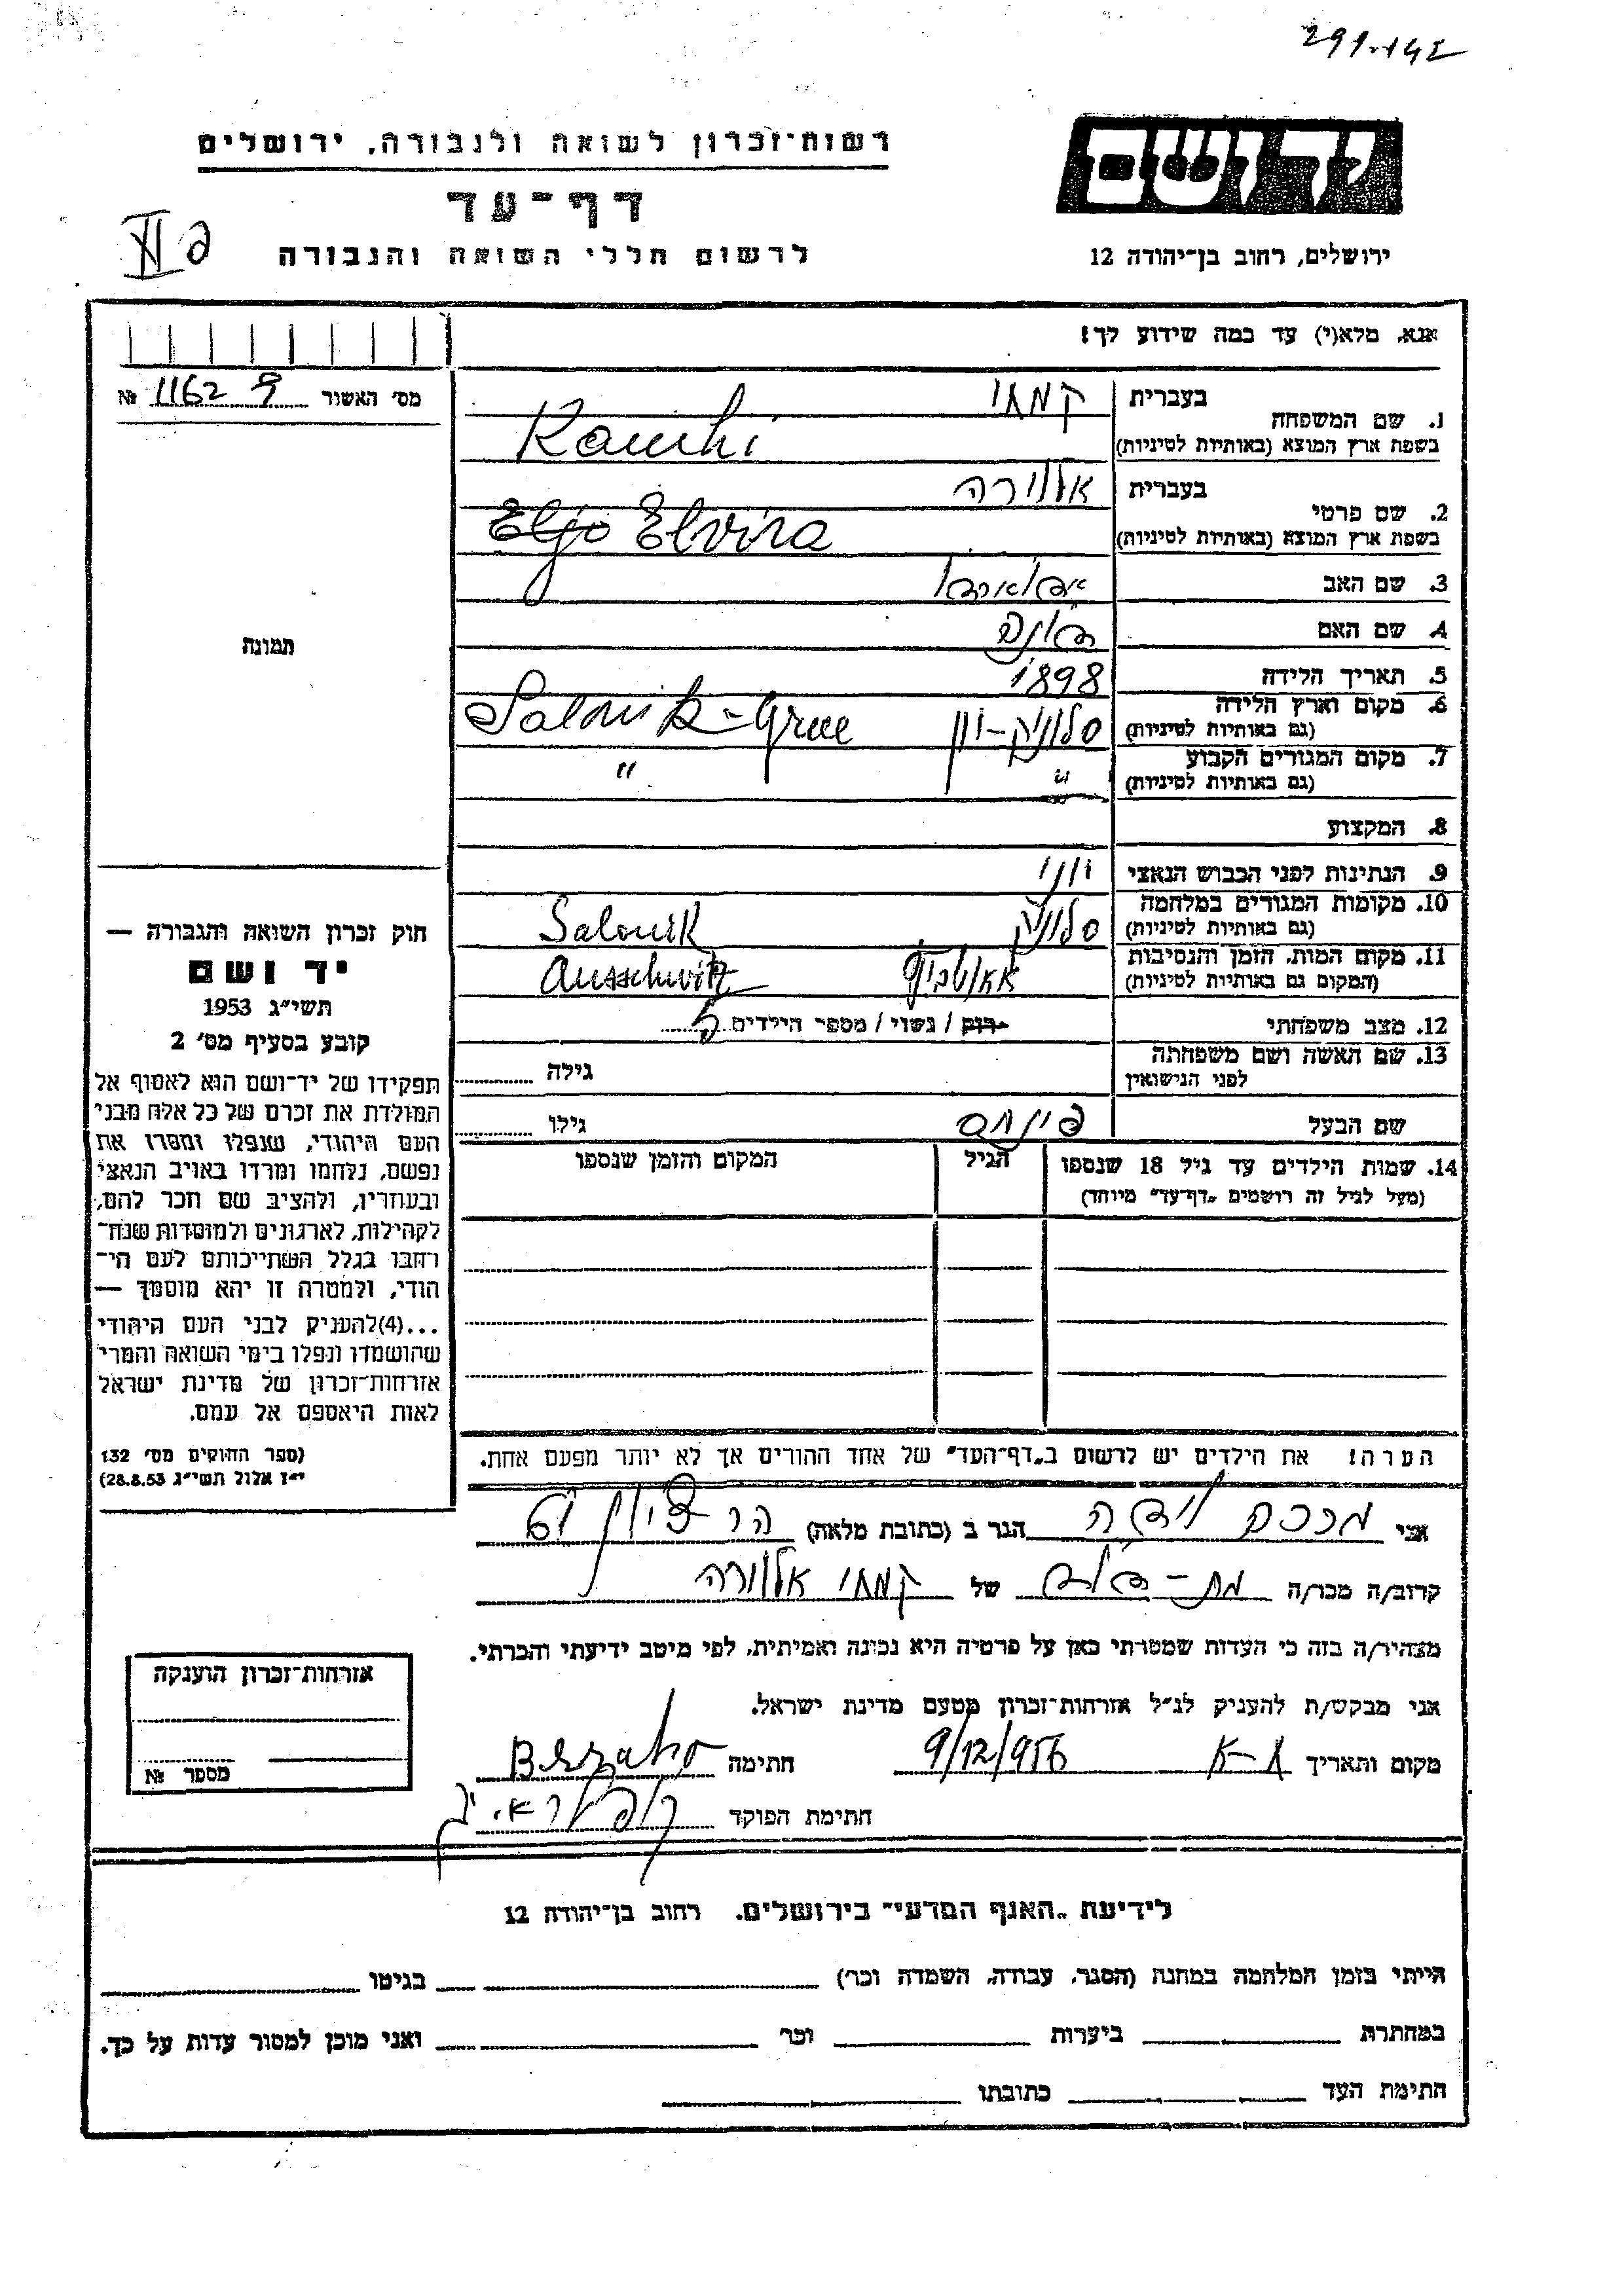 291-142
רשות־זכרון לשואה ולגבורה, ירושלים
יד ושם
דף־עד
לרשום חללי השואה והגבורה
ירושלים, רחוב בן־יהודה 12
אנא, מלא(י) עד כמה שידוע לך!
מס׳ האשור 1162 № 9
1. שם המשפחה בעברית קמחי
בשפת ארץ המוצא (באותיות לטיניות) Kamhi
2. שם פרטי בעברית אלוירה
בשפת ארץ המוצא (באותיות לטיניות) Eljo Elvira
3. שם האב
4. שם האם
5. תאריך הלידה 1898
6. מקום וארץ הלידה (גם באותיות לטיניות) סלוניק-יון Salonik-Grece
7. מקום המגורים הקבוע (גם באותיות לטיניות) " "
8. המקצוע
9. הנתינות לפני הכבוש הנאצי יוני
10. מקומות המגורים במלחמה (גם באותיות לטיניות) סלוניק Salonik
11. מקום המות, הזמן והנסיבות (המקום גם באותיות לטיניות) אאושביץ Ausschwitz
12. מצב משפחתי רוק / נשוי / מספר הילדים 5
13. שם האשה ושם משפחתה לפני הנישואין גילה
שם הבעל פינחס גילו
14. שמות הילדים עד גיל 18 שנספו הגיל המקום והזמן שנספו
(מעל לגיל זה רושמים „דף־עד״ מיוחד)
תמונה
חוק זכרון השואה והגבורה —
יד ושם
תשי״ג 1953
קובע בסעיף מס׳ 2
תפקידו של יד־ושם הוא לאסוף אל
המולדת את זכרם של כל אלה מבני
העם היהודי, שנפלו ומסרו את
נפשם, נלחמו ומרדו באויב הנאצי
ובעוזריו, ולהציב שם וזכר להם,
לקהילות, לארגונים ולמוסדות שנח־
רבו בגלל השתייכותם לעם הי־
הודי, ולמטרה זו יהא מוסמך —
...(4)להעניק לבני העם היהודי
שהושמדו ונפלו בימי השואה והמרי
אזרחות־זכרון של מדינת ישראל
לאות היאספם אל עמם.
(ספר החוקים מס׳ 132
י״ז אלול תשי״ג 28.8.53)
הערה! את הילדים יש לרשום ב„דף־העד״ של אחד ההורים אך לא יותר מפעם אחת.
אני הגר ב (כתובת מלאה) הר ציון
קרוב/ה מכר/ה של קמחי אלוירה
מצהיר/ה בזה כי העדות שמסרתי כאן על פרטיה היא נכונה ואמיתית, לפי מיטב ידיעתי והכרתי.
אני מבקש/ת להעניק לנ״ל אזרחות־זכרון מטעם מדינת ישראל.
מקום ותאריך 9/12/956 חתימה
חתימת הפוקד
אזרחות־זכרון הוענקה
מספר №
לידיעת „האגף המדעי״ בירושלים, רחוב בן־יהודה 12
הייתי בזמן המלחמה במחנה (הסגר, עבודה, השמדה וכו׳) בגיטו
במחתרת ביערות וכו׳ ואני מוכן למסור עדות על כך.
חתימת העד כתובתו